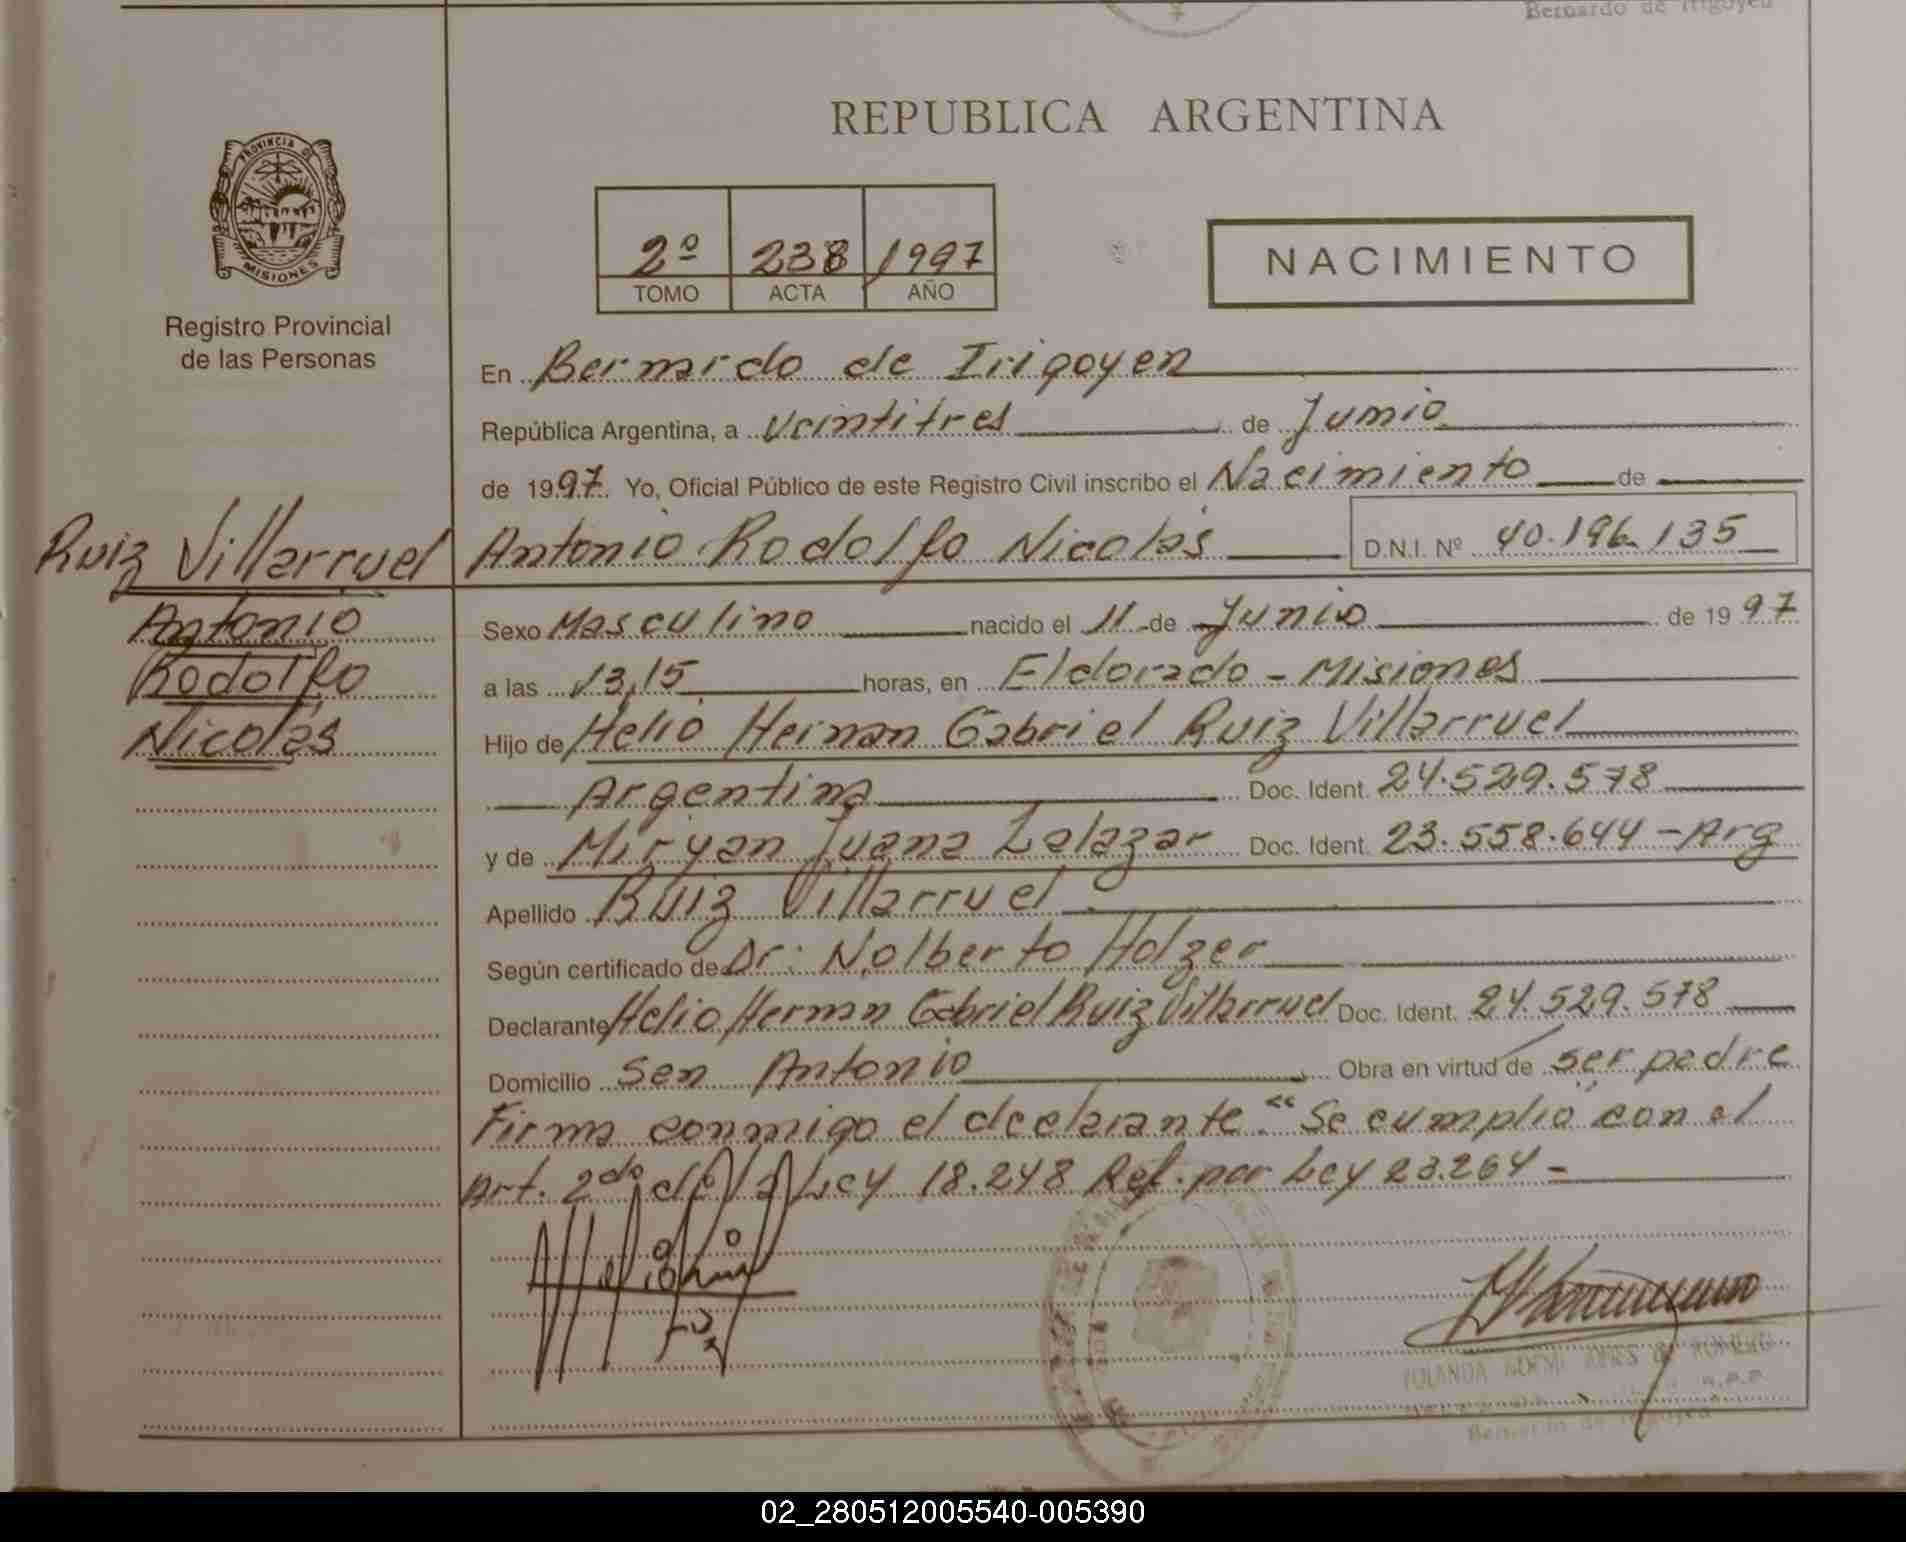 Bernardo de Irigoyen
REPUBLICA ARGENTINA
PROVINCIA DE
MISIONES
Registro Provincial
de las Personas
2º 238 1997
TOMO ACTA AÑO
NACIMIENTO
En Bernardo de Irigoyen
República Argentina, a Veintitres de Junio
de 1997. Yo, Oficial Público de este Registro Civil inscribo el Nacimiento de
Ruiz Villarruel Antonio Rodolfo Nicolás D.N.I. Nº 40.196.135
Antonio
Rodolfo
Nicolás
Sexo Masculino nacido el 11 de Junio de 1997
a las 13,15 horas, en Eldorado - Misiones
Hijo de Helio Hernan Gabriel Ruiz Villarruel
Argentina Doc. Ident. 24.529.578
y de Miryan Juana Zalazar Doc. Ident. 23.558.644 - Arg
Apellido Ruiz Villarruel
Según certificado de Dr: Nolberto Holzer
Declarante Helio Hernan Gabriel Ruiz Villarruel Doc. Ident. 24.529.578
Domicilio San Antonio Obra en virtud de ser padre
Firma conmigo el declarante." Se cumplio con el
Art. 2do de la Ley 18.248 Ref. por Ley 23.264 -
YOLANDA NOEMI DE ROMERO
Bernardo de Irigoyen
02_280512005540-005390